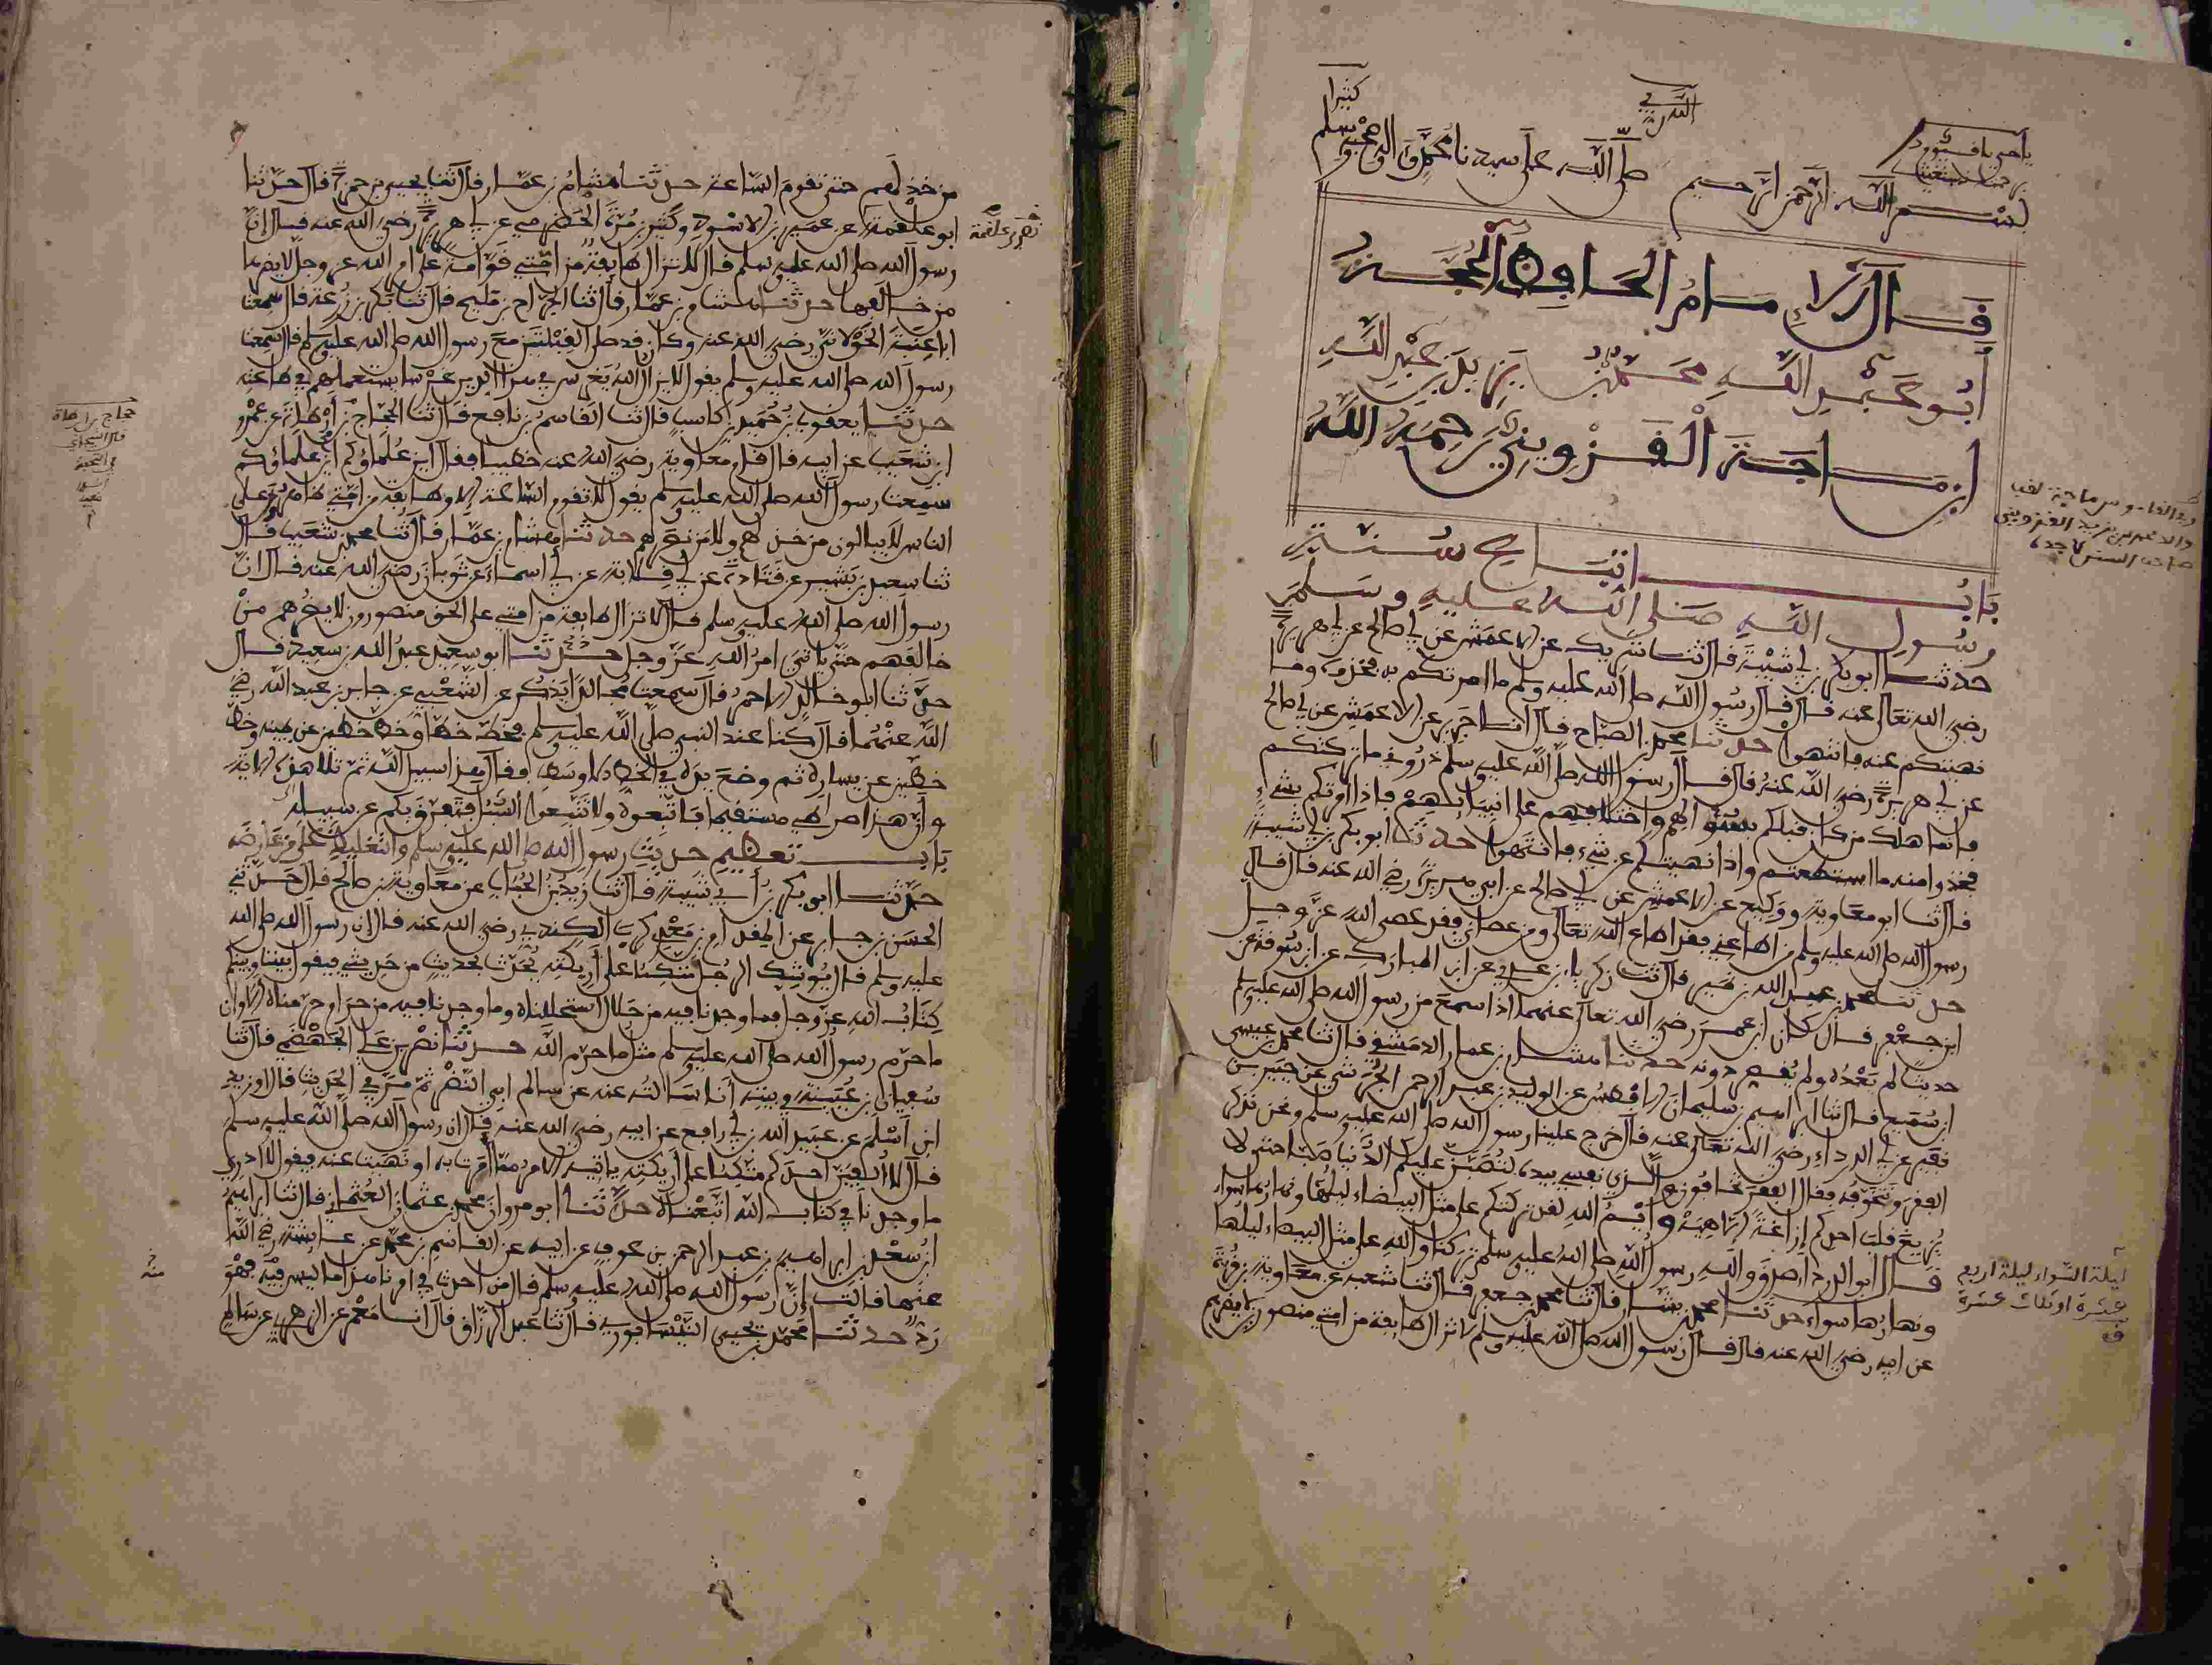 كثيرا
بسم الله الرحمن الرحيم صلى الله على سيدنا محمد وآله وصحبه وسلم
قال الإمام الحافظ الحجة
أبو عبد الله محمد بن يزيد بن عبد الله
ابن ماجة القزويني رحمه الله
باب اتباع سنة
رسول الله صلى الله عليه وسلم
حدثنا ابو بكر بن ابي شيبة قال ثنا شريك عن الاعمش عن ابي صالح عن ابي هريرة
رضي الله تعالى عنه قال قال رسول الله صلى الله عليه وسلم ما امرتكم به فخذوه وما
نهيتكم عنه فانتهوا حدثنا محمد بن الصباح قال انا جرير عن الاعمش عن ابي صالح
عن ابي هريرة رضي الله عنه قال قال رسول الله صلى الله عليه وسلم ذروني ما تركتكم
فانما هلك من كان قبلكم بسؤالهم واختلافهم على انبيائهم فاذا امرتكم بشيء
فخذوا منه ما استطعتم واذا نهيتكم عن شيء فانتهوا حدثنا ابو بكر بن ابي شيبة
قال ثنا ابو معاوية ووكيع عن الاعمش عن ابي صالح عن ابي هريرة رضي الله عنه قال قال
رسول الله صلى الله عليه وسلم من اطاعني فقد اطاع الله تعالى ومن عصاني فقد عصى الله عز وجل
حدثنا محمد بن عبد الله بن نمير قال ثنا زكرياء بن عدي عن ابن المبارك عن ابن سوقة عن
ابي جعفر قال كان ابن عمر رضي الله تعالى عنهما اذا سمع من رسول الله صلى الله عليه وسلم
حديثا لم يعده ولم يقصر دونه حدثنا هشام بن عمار الدمشقي قال ثنا محمد بن عيسى
ابن سميع قال ثنا ابراهيم بن سليمان الافطس عن الوليد بن عبد الرحمن الجرشي عن جبير بن
نفير عن ابي الدرداء رضي الله تعالى عنه قال خرج علينا رسول الله صلى الله عليه وسلم ونحن نذكر
الفقر ونتخوفه فقال الفقر تخافون والذي نفسي بيده لتصبن عليكم الدنيا صبا حتى لا
يزيغ قلب احدكم ازاغة الا هيه وايم الله لقد تركتكم على مثل البيضاء ليلها ونهارها سواء
قال ابو الدرداء صدق والله رسول الله صلى الله عليه وسلم تركنا والله على مثل البيضاء ليلها
ونهارها سواء حدثنا محمد بن بشار قال ثنا محمد بن جعفر قال ثنا شعبة عن معاوية بن قرة
عن ابيه رضي الله عنه قال قال رسول الله صلى الله عليه وسلم لا تزال طايفة من امتي منصورين لا يضرهم
ليلة السواء ليلة اربع
عشرة او ثلاث عشرة
ق
من خذلهم حتى تقوم الساعة حدثنا هشام بن عمار قال ثنا يحيى بن حمزة قال حدثنا
ابو علقمة عن عمير بن الاسود وكثير بن مرة الحضرمي عن ابي هريرة رضي الله عنه قال ان
نصر بن علقمة
رسول الله صلى الله عليه وسلم قال لا تزال طايفة من امتي قوامة على امر الله عز وجل لا يضرها
من خالفها حدثنا هشام بن عمار قال ثنا الجراح بن مليح قال ثنا بكر بن زرعة قال سمعت
ابا عنبة الخولاني رضي الله عنه وكان قد صلى القبلتين مع رسول الله صلى الله عليه وسلم قال سمعت
رسول الله صلى الله عليه وسلم يقول لا يزال الله يغرس في هذا الدين غرسا يستعملهم في طاعته
حدثنا يعقوب بن حميد بن كاسب قال ثنا القاسم بن نافع قال ثنا الحجاج بن ارطاة عن عمرو
ابن شعيب عن ابيه قال قام معاوية رضي الله عنه خطيبا فقال اين علماؤكم اين علماؤكم
سمعت رسول الله صلى الله عليه وسلم يقول لا تقوم الساعة الا وطايفة من امتي ظاهرون على
الناس لا يبالون من خذلهم ولا من نصرهم حدثنا هشام بن عمار قال ثنا محمد بن شعيب قال
ثنا سعيد بن بشير عن قتادة عن ابي قلابة عن ابي اسماء عن ثوبان رضي الله عنه قال ان
رسول الله صلى الله عليه وسلم قال لا تزال طايفة من امتي على الحق منصورون لا يضرهم من
خالفهم حتى ياتي امر الله عز وجل حدثنا ابو سعيد عبد الله بن سعيد قال
حدثنا ابو خالد الاحمر قال سمعت مجالدا يذكر عن الشعبي عن جابر بن عبد الله رضي
الله عنهما قال كنا عند النبي صلى الله عليه وسلم فخط خطا وخط خطين عن يمينه وخط
خطين عن يساره ثم وضع يده في الخط الاوسط وقال هذا سبيل الله ثم تلا هذه الاية
وأن هذا صراطي مستقيما فاتبعوه ولا تتبعوا السبل فتفرق بكم عن سبيله
باب تعظيم حديث رسول الله صلى الله عليه وسلم والتغليظ على من عارضه
حدثنا ابو بكر بن ابي شيبة قال ثنا زيد بن الحباب عن معاوية بن صالح قال حدثني
الحسن بن جابر عن المقدام بن معدي كرب الكندي رضي الله عنه قال ان رسول الله صلى الله
عليه وسلم قال يوشك الرجل متكئا على أريكته يحدث بحديث من حديثي فيقول بيننا وبينكم
كتاب الله عز وجل فما وجدنا فيه من حلال استحللناه وما وجدنا فيه من حرام حرمناه الا وان
ما حرم رسول الله صلى الله عليه وسلم مثل ما حرم الله حدثنا نصر بن علي الجهضمي قال ثنا
سفيان بن عيينة في بيته أنا سألته عنه عن سالم ابي النضر ثم مر في الحديث قال او زيد
ابن اسلم عن عبيد الله بن ابي رافع عن ابيه رضي الله عنه قال ان رسول الله صلى الله عليه وسلم
قال لا ألفين احدكم متكئا على أريكته ياتيه الامر مما امرت به او نهيت عنه فيقول لا ادري
ما وجدنا في كتاب الله اتبعناه حدثنا ابو مروان محمد بن عثمان العثماني قال ثنا ابراهيم
ابن سعد بن ابراهيم بن عبد الرحمن بن عوف عن ابيه عن القاسم بن محمد عن عايشة رضي الله
عنها قالت إن رسول الله صلى الله عليه وسلم قال من احدث في امرنا هذا ما ليس فيه فهو
منه
رد حدثنا محمد بن يحيى النيسابوري قال ثنا عبد الرزاق قال انا معمر عن الزهري عن سالم